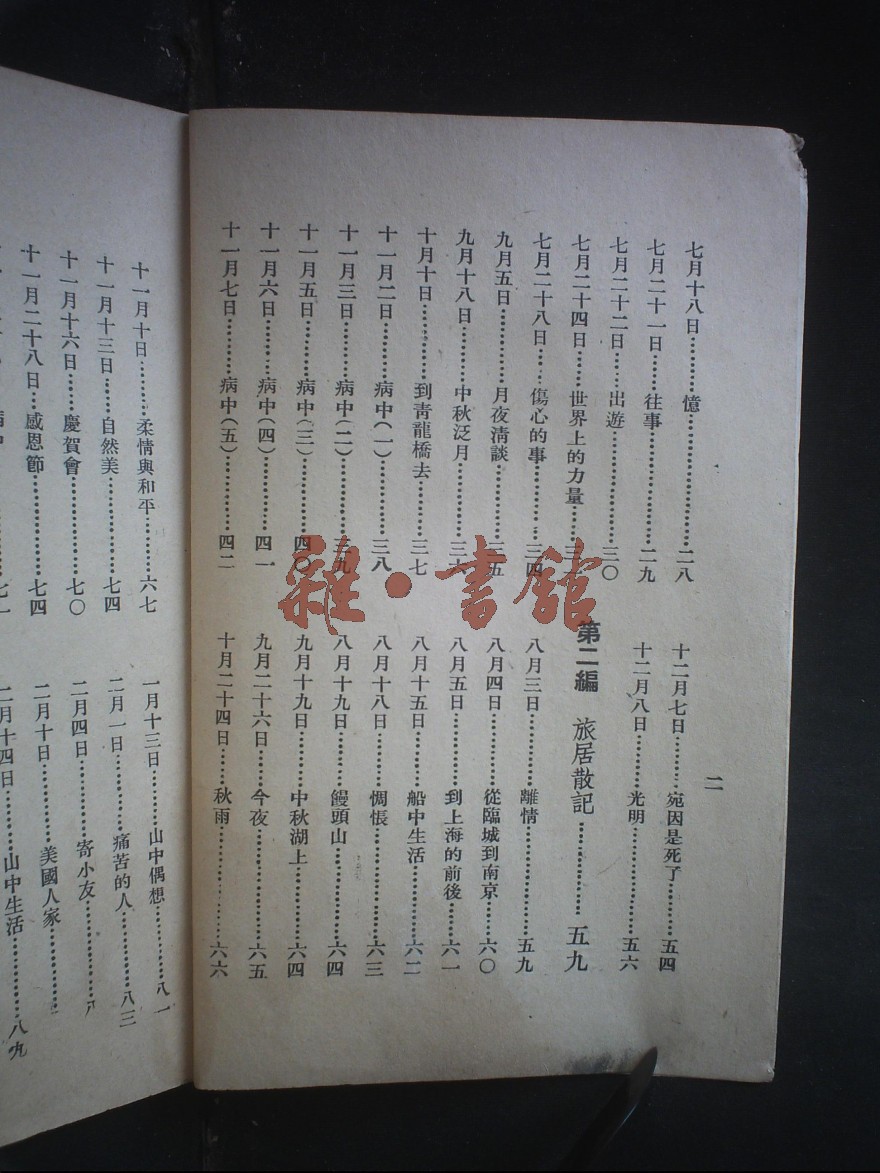 七月十八日………憶………二八
七月二十一日……往事………二九
七月二十二日……出遊………三〇
七月二十四日……世界上的力量……三
七月二十八日……傷心的事………三四
九月五日………月夜清談………三五
九月十八日………中秋泛月………三六
十月十日………到青龍橋去………三七
十一月二日………病中(一)………三八
十一月三日………病中(二)………三九
十一月五日………病中(三)………四〇
十一月六日………病中(四)………四一
十一月七日………病中(五)………四二
二
十二月七日………宛因是死了………五四
十二月八日………光明………五六
第二編 旅居散記………五九
八月三日………離情………五九
八月四日………從臨城到南京………六〇
八月五日………到上海的前後………六一
八月十五日………船中生活………六二
八月十八日………惆悵………六三
八月十九日………饅頭山………六四
九月十九日………中秋湖上………六四
九月二十六日……今夜………六五
十月二十四日……秋雨………六六
十一月十日………柔情與和平………六七
十一月十三日……自然美………七四
十一月十六日……慶賀會………七〇
十一月二十八日……感恩節………七四
一月十三日………山中偶想………八一
二月一日………痛苦的人………八三
二月四日………寄小友………八
二月十日………美國人家………
二月十四日………山中生活………八九
雜·書館